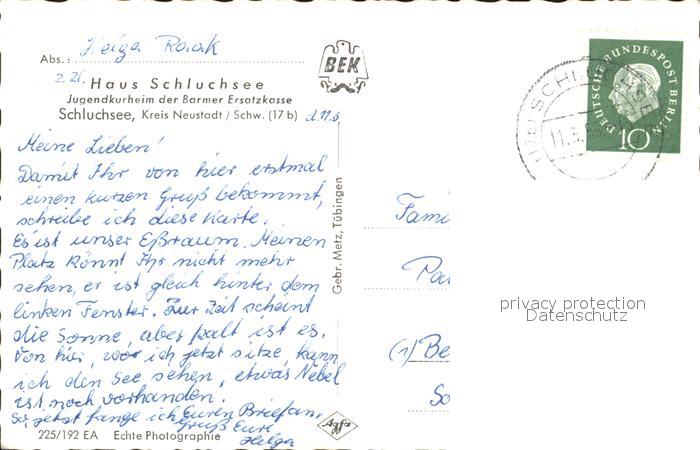 Abs.: Helga
z. Zt. Haus Schluchsee
Jugendkurheim der Barmer Ersatzkasse
Schluchsee, Kreis Neustadt / Schw. (17 b) d. 11.3.
BEK
DEUTSCHE BUNDESPOST BERLIN
10
SCHLUCHSEE
11.3.
Meine Lieben!
Damit Ihr von hier erstmal
einen kurzen Gruß bekommt,
schreibe ich diese Karte.
Es ist unser Eßraum. Meinen
Platz könnt Ihr nicht mehr
sehen, er ist gleich hinter dem
linken Fenster. Zur Zeit scheint
die Sonne, aber kalt ist es.
Von hier, wo ich jetzt sitze, kann
ich den See sehen, etwas Nebel
ist noch vorhanden.
So, jetzt fange ich Euren Brief an.
Gruß Eure
Helga
225/192 EA Echte Photographie
Gebr. Metz, Tübingen
Agfa
Fami
(1) Be
So
privacy protection
Datenschutz